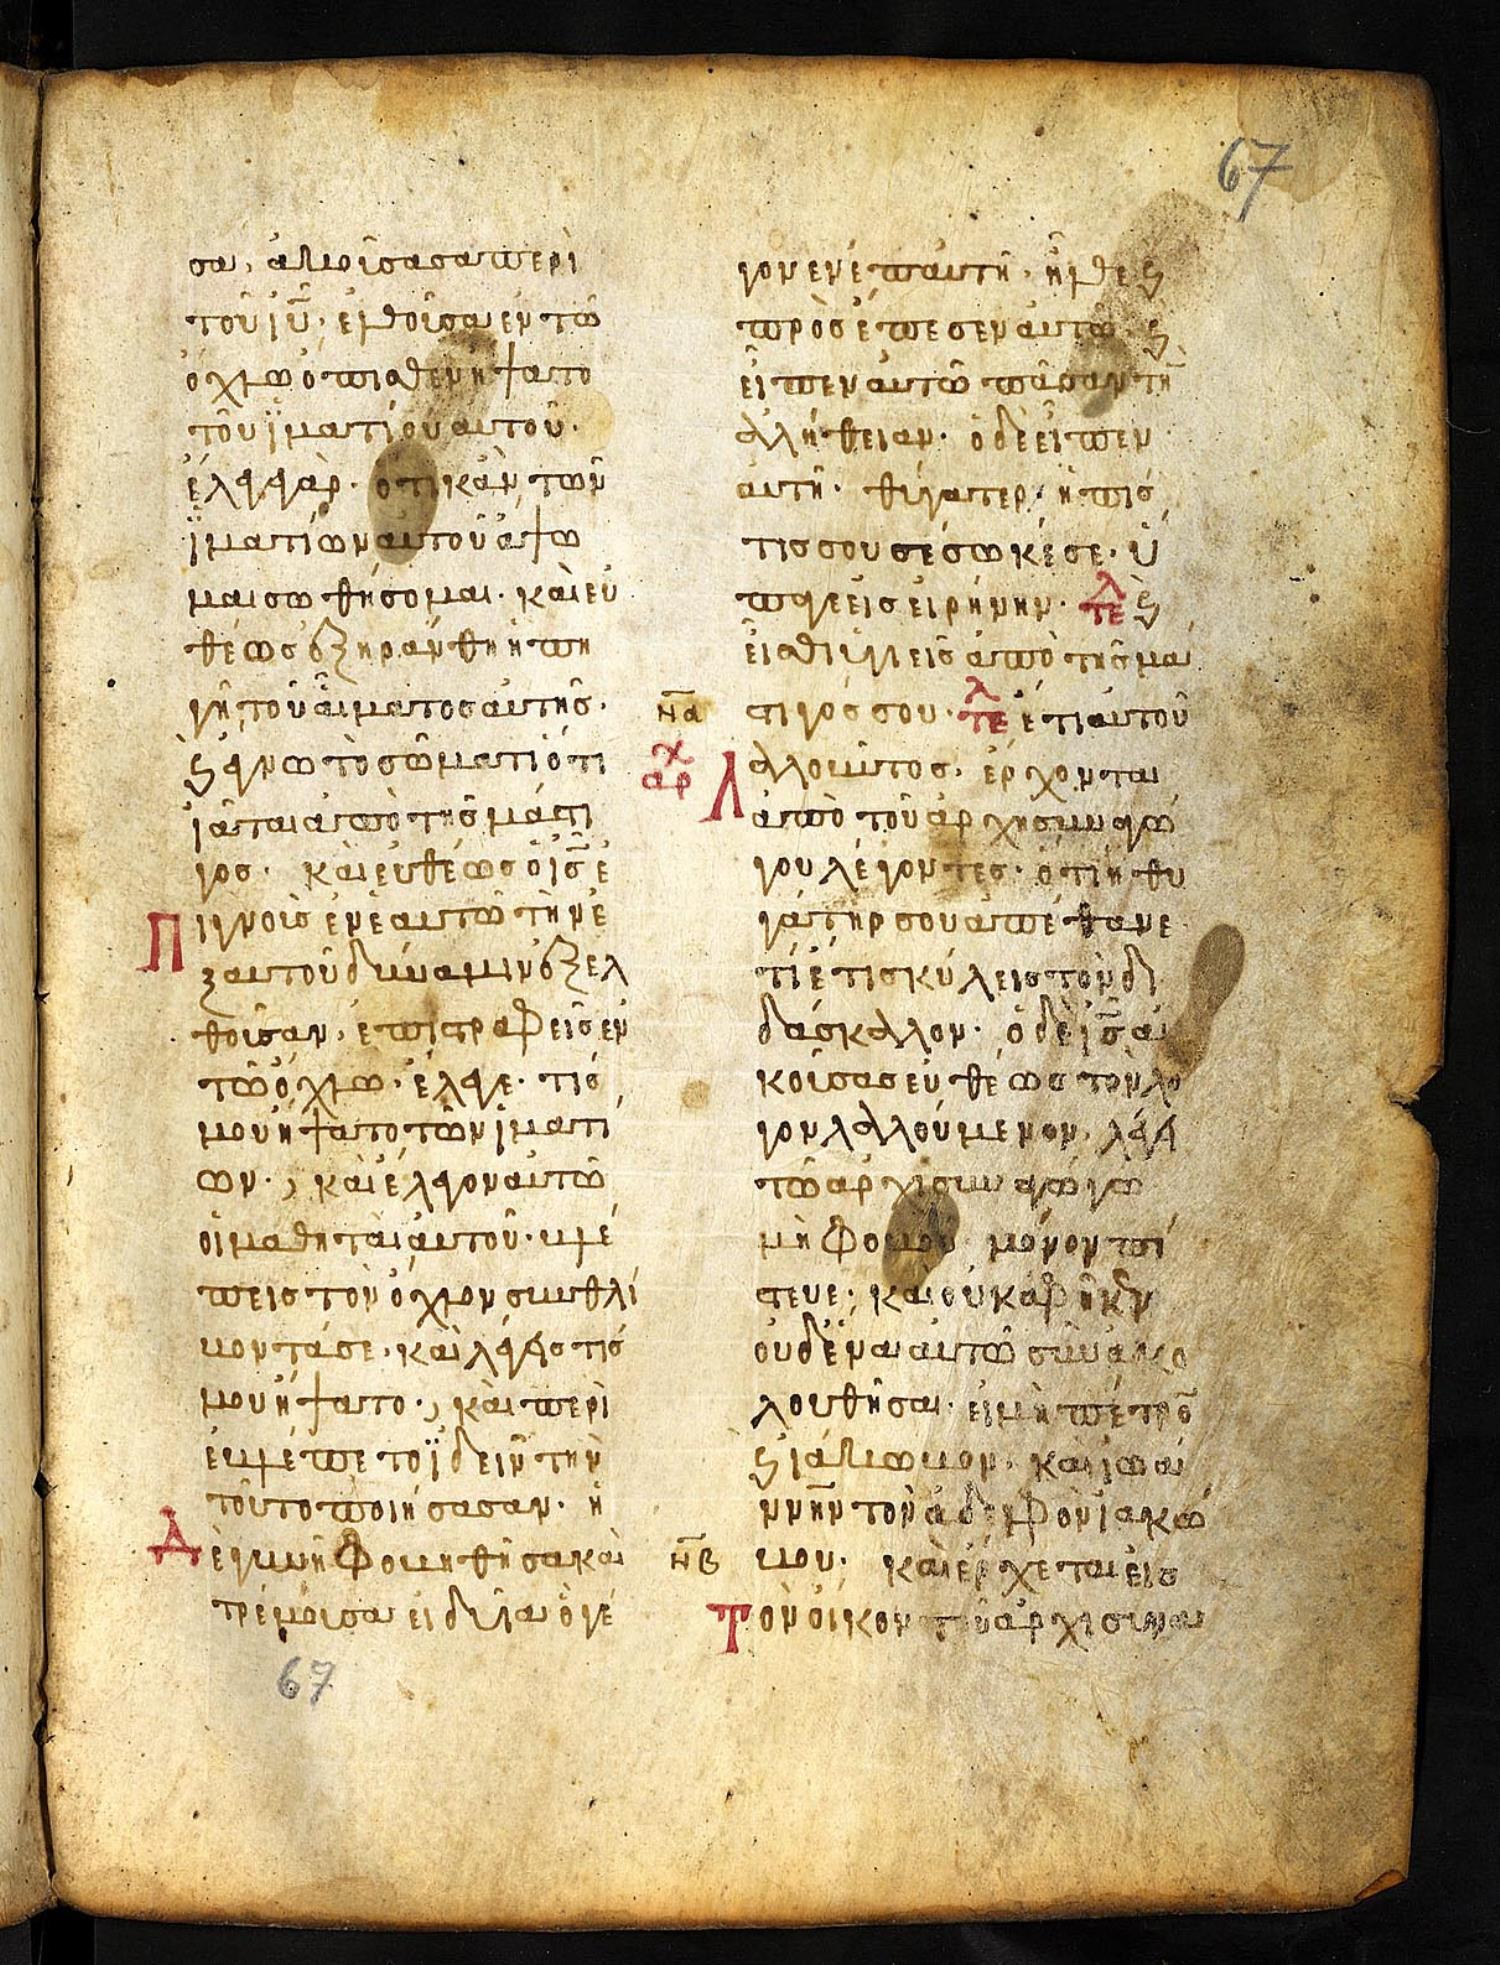 67
σα, ἀκούσασα περὶ
τοῦ ἰυ̅, ἐλθοῦσα ἐν τῶ
ὄχλω ὄπισθεν ἥψατο
τοῦ ἱματίου αὐτοῦ·
ἔλεγεγὰρ· ὅτι κἂν τῶν
ἱματίων αὐτοῦ ἅψω
μαι σωθήσομαι· καὶ εὐ
θέως ἐξηράνθη ἡ πη
γὴ τοῦ αἵματος αὐτῆς·
ϗ ἔγνω τῶ σώματι ὅτι
ἰᾶται ἀπὸ τῆς μάστι
γος· καὶ εὐθέως ὁ ισ̅ ἐ
πιγνοὺς ἐν ἑαυτῶ τὴν ἐ
ξ αὐτοῦ δύναμιν ἐξελ
θοῦσαν, ἐπιστραφεὶς ἐν
τῶ ὄχλω· ἔλεγε· τίς
μου ἥψατο τῶν ἱματί
ων·, καὶ ἔλεγον αὐτῶ
οἱ μαθηταὶ αὐτοῦ· βλέ
πεις τὸν ὄχλον συνθλί
βοντά σε· καὶ λέγεις τίς
μου ἥψατο·, καὶ περι
εβλέπετο ἰδεῖν τὴν
τοῦτο ποιήσασαν· ἡ
δὲ γυνὴ φοβηθῆσα καὶ
τρέμουσα εἰδυῖα ὃ γέ
67
γονεν ἐπ αὐτῆ· ἦλθε ϗ
προσέπεσεν αὐτῶ ϗ
εἶπεν αὐτῶ πᾶσαν τὴ̅
ἀλήθειαν· ὁ δὲ εἶπεν
αὐτῆ· θύγατερ, ἡ πίσ
τις σου σέσωκέ σε· ὕ
παγε εἰς εἰρήνην· τελ ϗ
ἴσθι ὑγιεὶς ἀπὸ τῆς μά
να στιγός σου· τελ ἔτι αὐτοῦ
αρχ λαλοῦντος, ἔρχονται
ἀπὸ τοῦ ἀρχησυναγώ
γου λέγοντες· ὅτι ἡ θυ
γάτηρ σου ἀπέθανε
τί ἔτι σκύλεις τὸν δι
δάσκαλον· ὁ δὲ ισ̅ ἀ
κούσας εὐθέως τὸν λό
γον λαλούμενον, λέγει
τῶ ἀρχισυναγώγω
μὴ φοβοῦ μόνον πί
στευε·, καὶ οὐκ ἀφῆκεν
οὐδένα αὐτῶ συνακο
λουθῆσαι· εἰ μὴ πέτρο̅
ϗ ἰάκωβον· καὶ ἰωά
ννην τὸν ἀδελφὸν ἰακώ
νβ βου· καὶ ἔρχεται εἰς
τὸν οἶκον τοῦ ἀρχισυνα